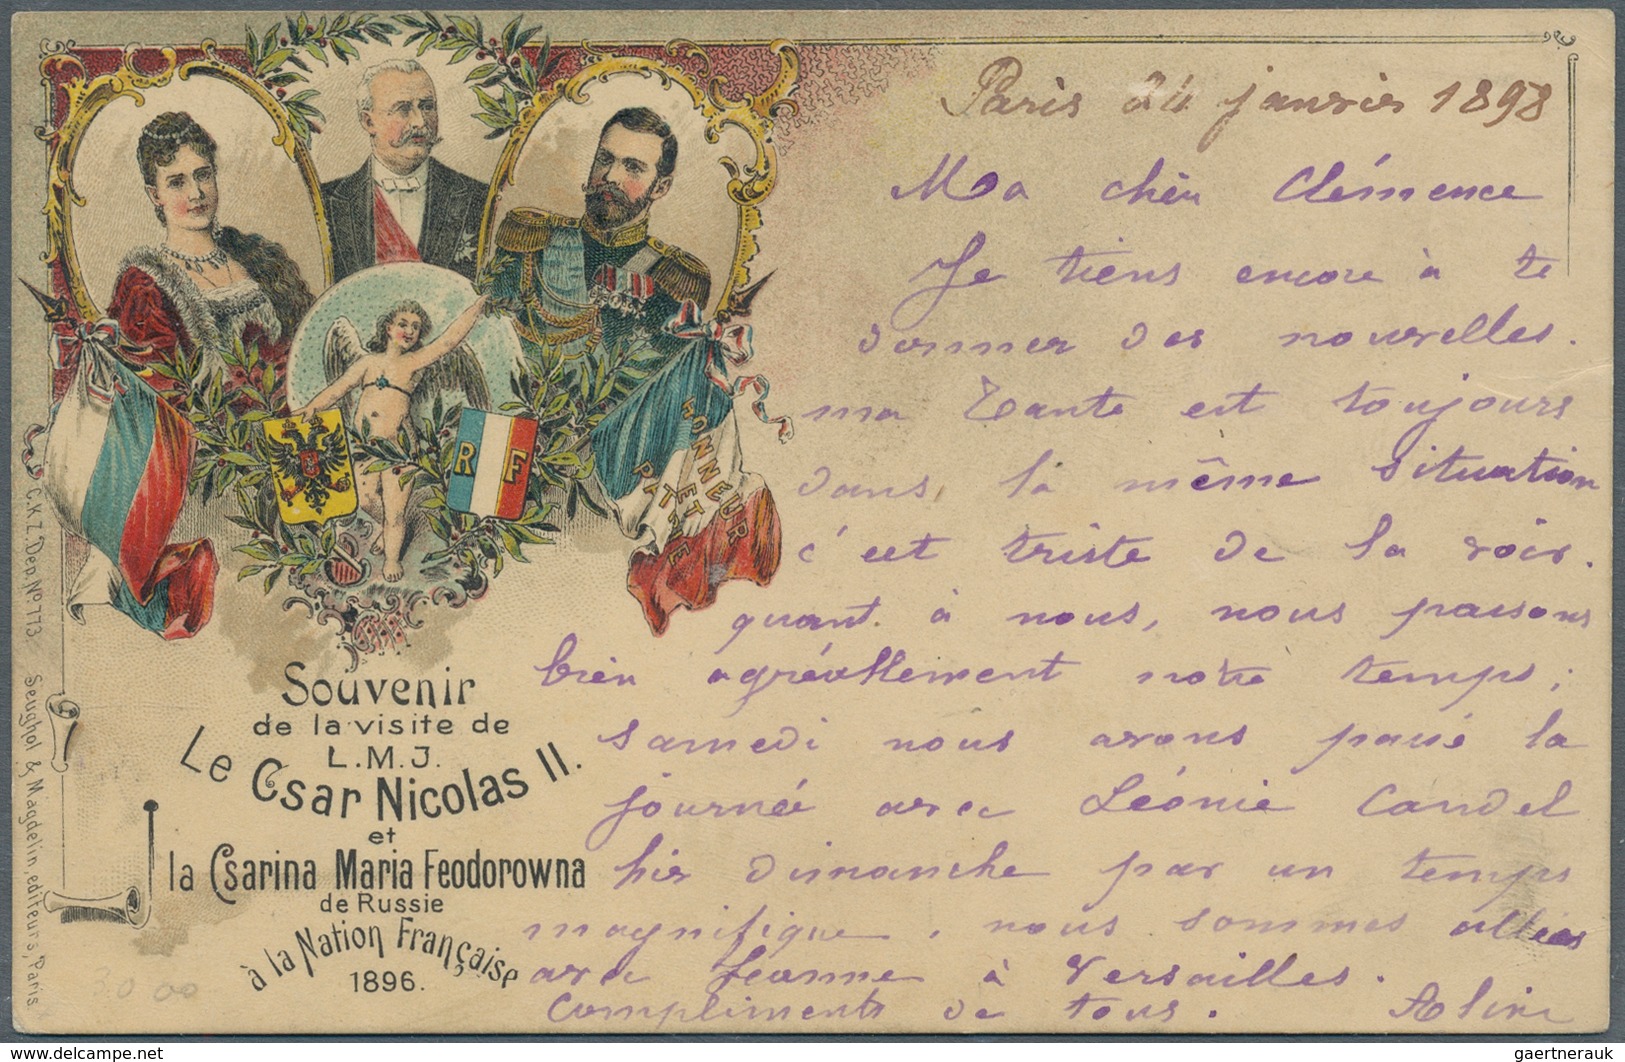 Paris 24 janvier 1898
Ma chère Clémence
Je tiens encore à te
donner des nouvelles.
ma Tante est toujours
dans la même situation
c'est triste de la voir.
quant à nous, nous passons
bien agréablement notre temps;
samedi nous avons passé la
journée avec Léonie Candel
hier dimanche par un temps
magnifique, nous sommes allées
avec Jeanne à Versailles.
Compliments de tous. Aline
HONNEUR
ET
PATRIE
R F
Souvenir
de la visite de
L.M.J.
Le Csar Nicolas II.
et
la Csarina Maria Feodorowna
de Russie
à la Nation Française
1896.
C.K.Z. Dep. No 773. Seughol & Magdelin, editeurs, Paris.
30 00
gaertnerauk @ delcampe.net